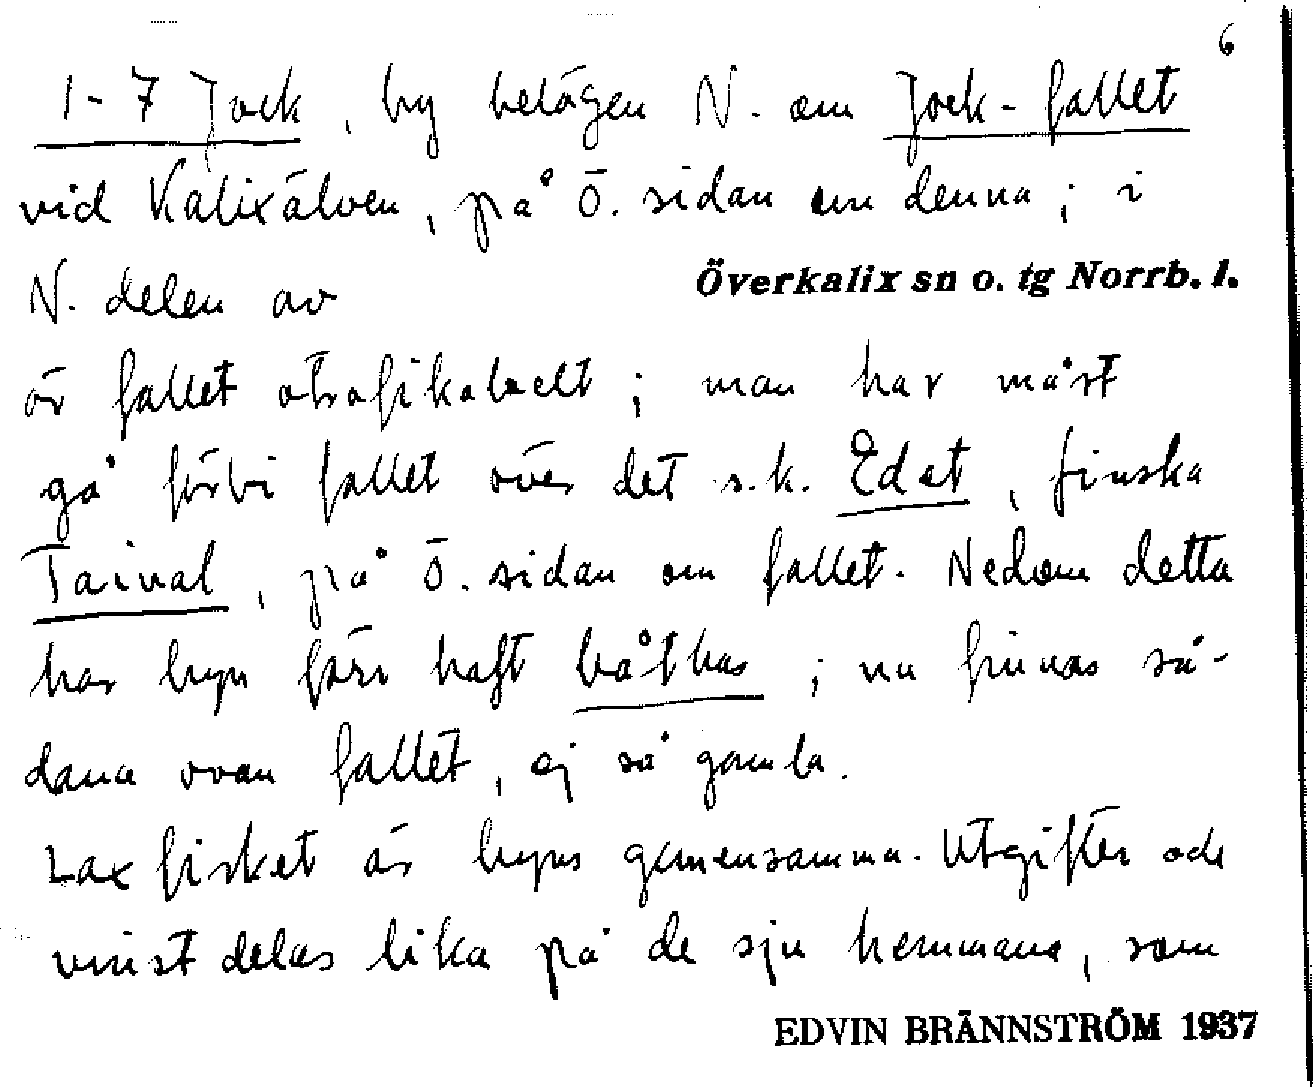 6
1-7 Jock, by belägen N. om Jock-fallet
vid Kalixälven, på Ö. sidan om denna; i
Överkalix sn o. tg Norrb. l.
N. delen av
är fallet otrafikabelt; man har måst
gå förbi fallet över det s.k. Edet, finska
Taival, på Ö. sidan om fallet. Nedom detta
har byn förr haft båthus; nu finnas så-
dana ovan fallet, ej så gamla.
Laxfisket är byns gemensamma. Utgifter och
vinst delas lika på de sju hemmans, som
EDVIN BRÄNNSTRÖM 1937